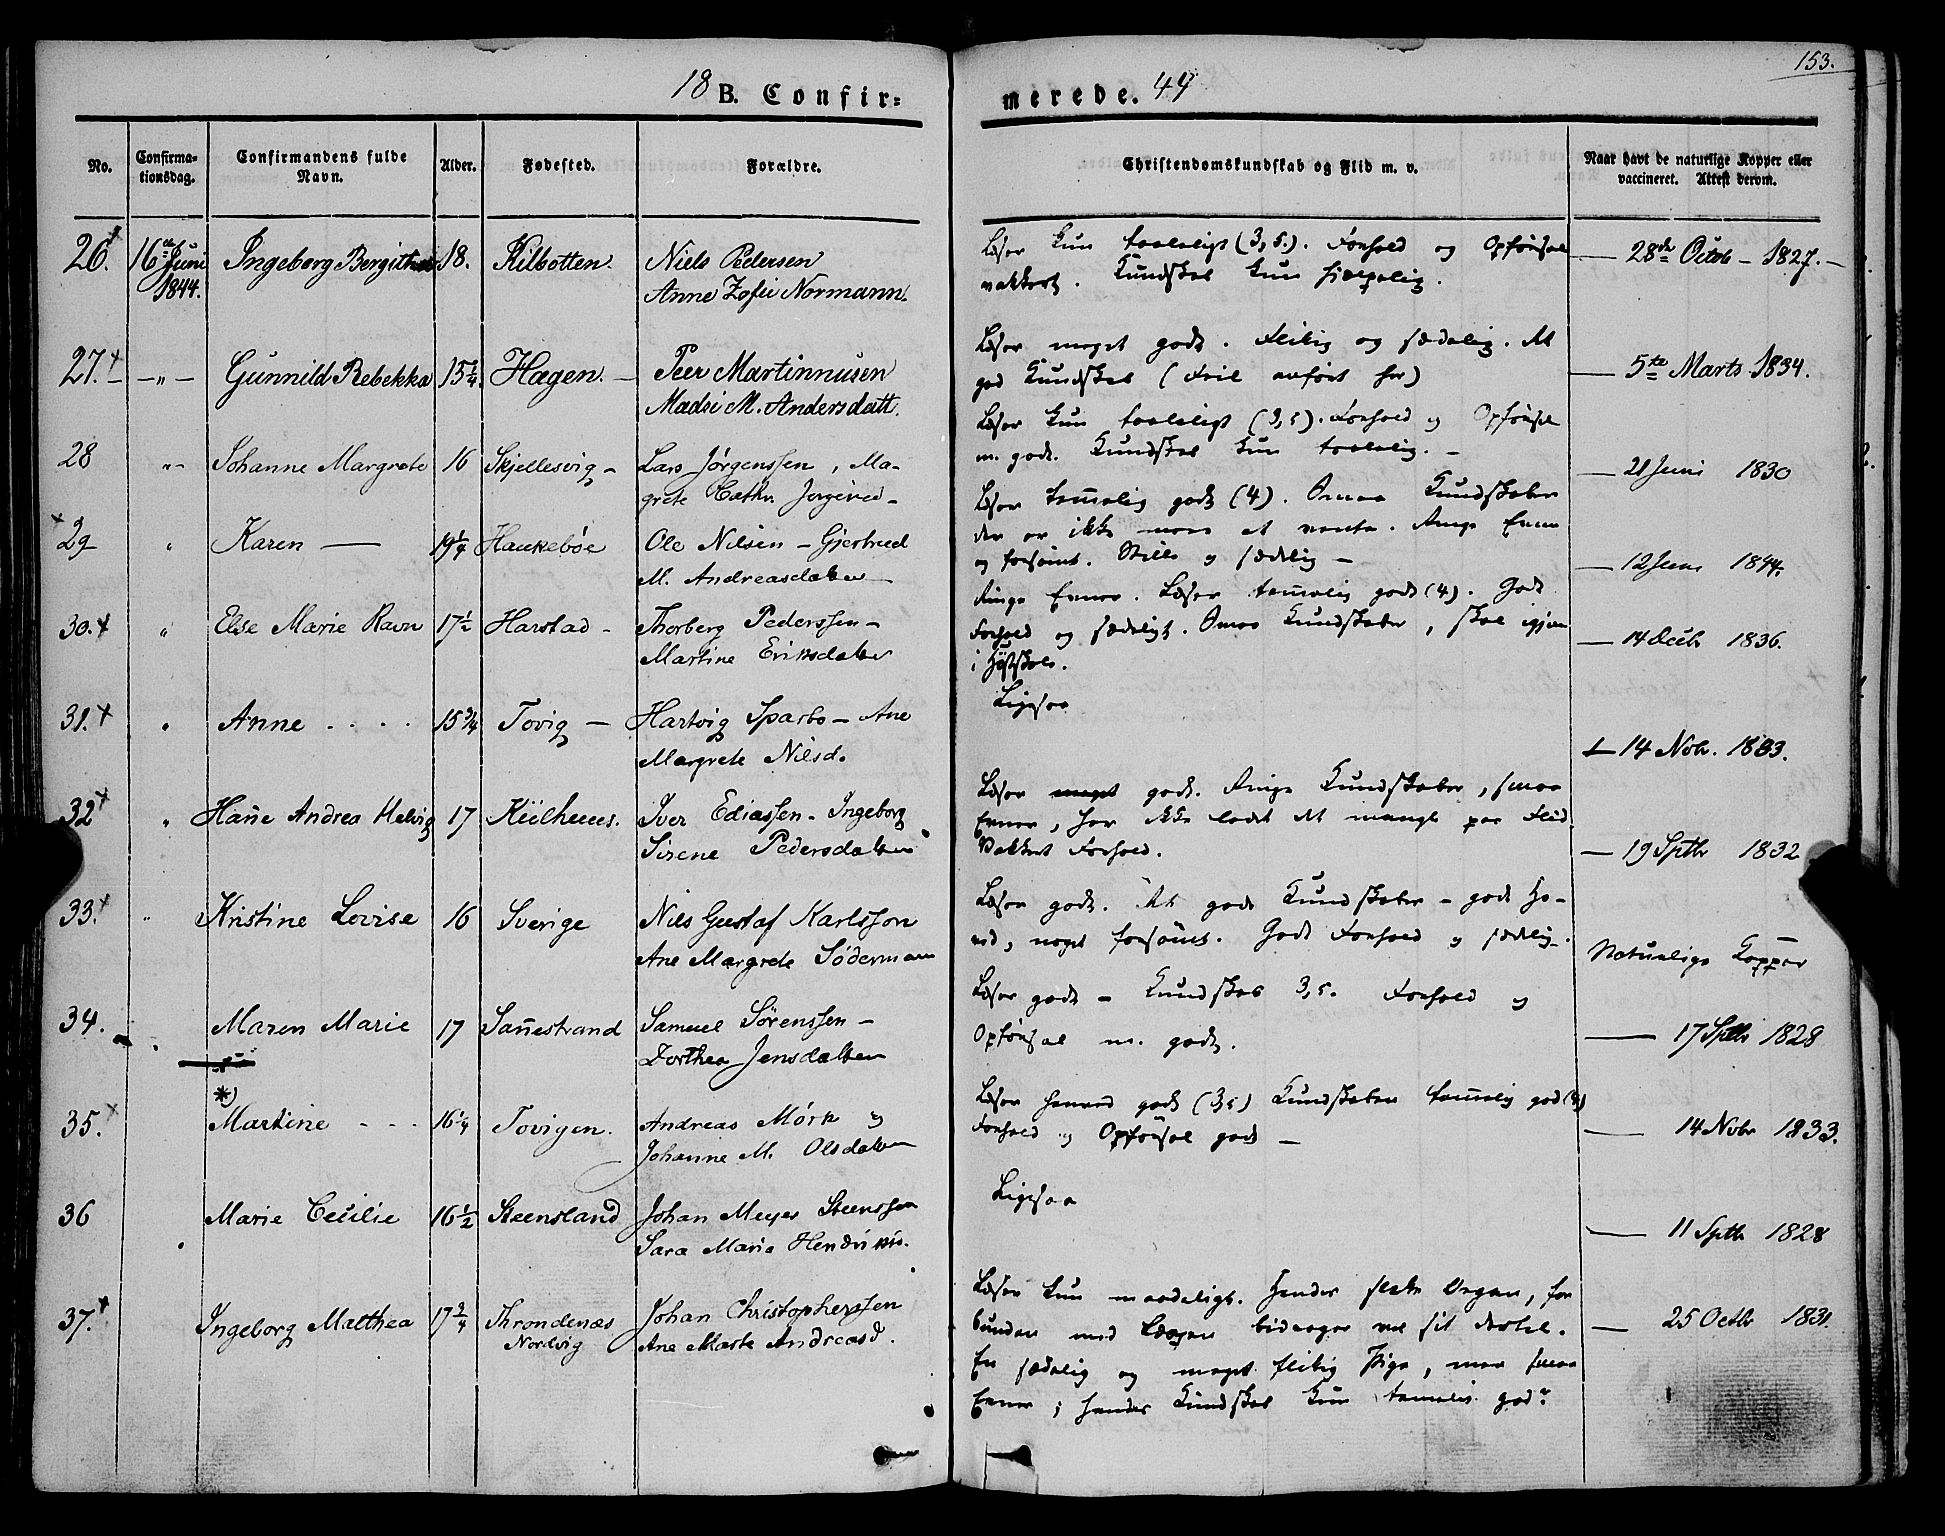 153.
18 B. Confirmerede. 44
No. Confirmationsdag. Confirmandens fulde Navn. Alder. Fødested. Forældre. Christendomskundskab og Flid m. v. Naar havt de naturlige Kopper eller vaccineret. Attest derom.
26. 16de Juni 1844. Ingeborg Bergitha 18. Kilbotten. Niels Pedersen
Anne Zofie Normann.
Læser kun taaleligt (3,5.). Forhold og Opførsel
vakkert. Kundskab kun
28de Octob - 1827. -
27. + - " - Gunnild Rebekka 15 1/4. Hagen. - Peer Martinnusen
Madsi M. Andersdatt.
Læser meget godt. Flittig og sædelig. Et
god Kundskab
5te Marts 1834.
28 " Johanne Margrete 16 Skjellesvig - Lars Jørgenssen, Ma-
grete Cathr.
Læser kun taaleligt (3,5). Forhold og Opførsel
m. godt. Kundskab kun taalelig. -
21 Juni 1830
+ 29 " Karen - 19 1/4 Haukebøe Ole Nilsen - Gjertrud
M. Andreasdatter
Læser temmelig godt (4). Smaa Kundskaber
der er ikke mere at vente. Ringe Evner
og forsømt. Stille og sædelig -
12 Juni 1844.
30. + " Else Marie Ravn 17 1/2 Harstad - Thorberg Pederssen -
Martine Eriksdatter
Ringe Evner. Læser temmelig godt (4). Godt
Forhold og sædeligt. Smaa Kundskaber, skal igjen
i Høstskole.
14 Octb 1836.
31. + " Anne . . . . 15 3/4 Tovig - Hartvig Sparbo - Ane
Margrete Nilsd.
Ligesaa
14 Nobr. 1833.
32 + " Hanne Andrea Helvig 17 Kiilhuus. Iver Ediassen - Ingeborg
Sirene Pedersdatter
Læser meget godt. Ringe Kundskaber, smaa
Evner, har ikke ladet det mangle paa Flid
Vakkert Forhold.
19 Sptbr 1832
33. + " Kristine Lovise 16 Sverige Nils Gustaf Karlsson
Ane Margrete Södermann
Læser godt. Ret gode Kundskaber - godt Ho-
ved, noget forsømt. Godt Forhold og sædelig.
Naturlige Kopper
34. Maren Marie 17 Sannestrand Samuel Sørenssen -
Dorthea Jensdatter
Læser godt - Kundskab 3,5. Forhold og
Opførsel m. godt.
17 Sptbr 1828
*)
35. + Martine - - - 16 1/4 Tovigen. Andreas Mörk og
Johanne M. Olsdatter
Læser godt (3,5) Kundskaber temmelig god (4)
Forhold og Opførsel godt -
14 Nobr 1833.
36 Marie Cecilie 16 1/2 Steensland Johan Meyer Steenssen
Sara Maria Hendriks.
Ligesaa
11 Sptbr 1828
37. + Ingeborg Matthea 17 3/4 Throndenæs
Nordvig Johan Christopherssen
Ane Marte Andreasd.
Læser kun maadeligt. Hendes slette Organ, for
bunden med Læspen bidrager vel sit dertil.
En sædelig og meget flittig Pige, men smaa
Evner; hendes Kundskab kun temmelig god.
25 Octbr 1831.